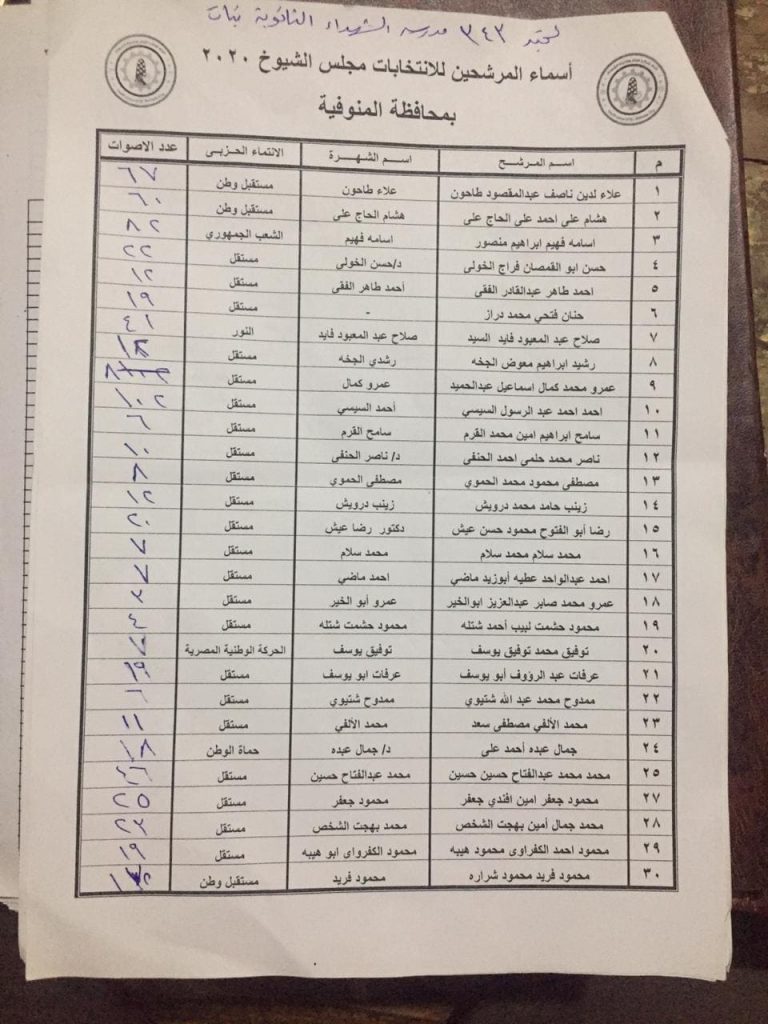 لجنة ٣٤٣ مدرسه الشهداء الثانوية بنات
أسماء المرشحين للانتخابات مجلس الشيوخ ٢٠٢٠
بمحافظة المنوفية
م اسم المرشح اسم الشهرة الانتماء الحزبى عدد الاصوات
١ علاء لدين ناصف عبدالمقصود طاحون علاء طاحون مستقبل وطن ٦٧
٢ هشام على احمد على الحاج على هشام الحاج على مستقبل وطن ٦٠
٣ اسامه فهيم ابراهيم منصور اسامه فهيم الشعب الجمهوري ٨٢
٤ حسن ابو القمصان فراج الخولى د/حسن الخولى مستقل ٢٢
٥ احمد طاهر عبدالقادر الفقى أحمد طاهر الفقى مستقل ١٢
٦ حنان فتحي محمد دراز - مستقل ١٩
٧ صلاح عبد المعبود فايد السيد صلاح عبد المعبود فايد النور ٤١
٨ رشيد ابراهيم معوض الجخه رشدي الجخه مستقل
٩ عمرو محمد كمال اسماعيل عبدالحميد عمرو كمال مستقل
١٠ احمد احمد عبد الرسول السيسي أحمد السيسي مستقل ١٠٢
١١ سامح ابراهيم امين محمد القرم سامح القرم مستقل ٦
١٢ ناصر محمد حلمى احمد الحنفى د/ ناصر الحنفى مستقل ١٠
١٣ مصطفى محمود محمد الحموي مصطفى الحموي مستقل ٨
١٤ زينب حامد محمد درويش زينب درويش مستقل ١٢
١٥ رضا أبو الفتوح محمود حسن عيش دكتور رضا عيش مستقل ٢٠
١٦ محمد سلام محمد سلام محمد سلام مستقل ٧
١٧ احمد عبدالواحد عطيه أبوزيد ماضي احمد ماضي مستقل ٧
١٨ عمرو محمد صابر عبدالعزيز ابوالخير عمرو أبو الخير مستقل
١٩ محمود حشمت لبيب أحمد شتله محمود حشمت شتله مستقل
٢٠ توفيق محمد توفيق يوسف توفيق يوسف الحركة الوطنية المصرية
٢١ عرفات عبد الرؤوف أبو يوسف عرفات ابو يوسف مستقل
٢٢ ممدوح محمد عبد الله شتيوي ممدوح شتيوي مستقل
٢٣ محمد الألفي مصطفى سعد محمد الألفي مستقل ١١
٢٤ جمال عبده أحمد على د/ جمال عبده حماة الوطن
٢٥ محمد محمد عبدالفتاح حسين حسين محمد عبدالفتاح حسين مستقل
٢٧ محمود جعفر امين افندي جعفر محمود جعفر مستقل ٢٥
٢٨ محمد جمال أمين بهجت الشخص محمد بهجت الشخص مستقل ٢٣
٢٩ محمود احمد الكفراوى محمود هيبه محمود الكفرواى ابو هيبه مستقل ١٩
٣٠ محمود فريد محمود شراره محمود فريد مستقبل وطن